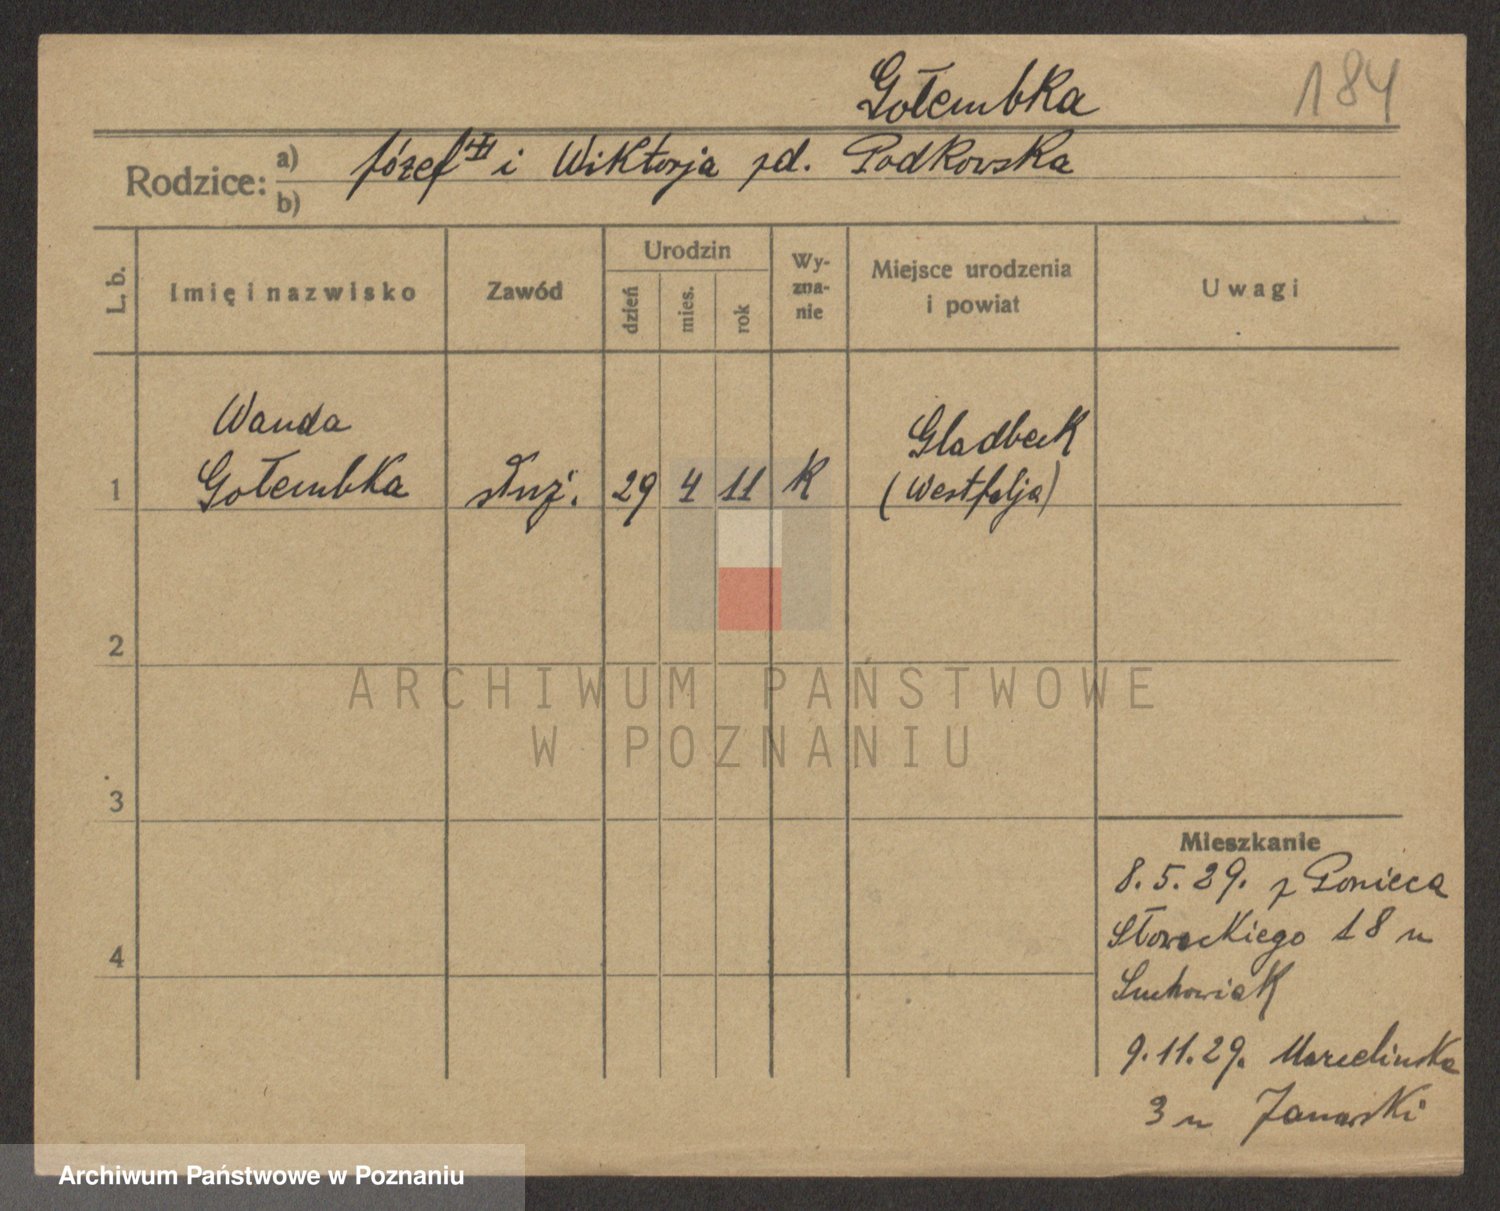 Gołembka 184
Rodzice: a) Józef i Wiktorja zd. Podkowska
b)
L. b.
Imię i nazwisko
Zawód
Urodzin
dzień
mies.
rok
Wy-
zna-
nie
Miejsce urodzenia
i powiat
Uwagi
Wanda
Gołembka
1
służ.
29
4
11
K
Gladbeck
(Westfalja)
2
3
4
Mieszkanie
8.5.29. z Ponieca
Słowackiego 18 u
Suchowiak
9.11.29. Marcelińska
3 u Janowski
ARCHIWUM PAŃSTWOWE
W POZNANIU
Archiwum Państwowe w Poznaniu